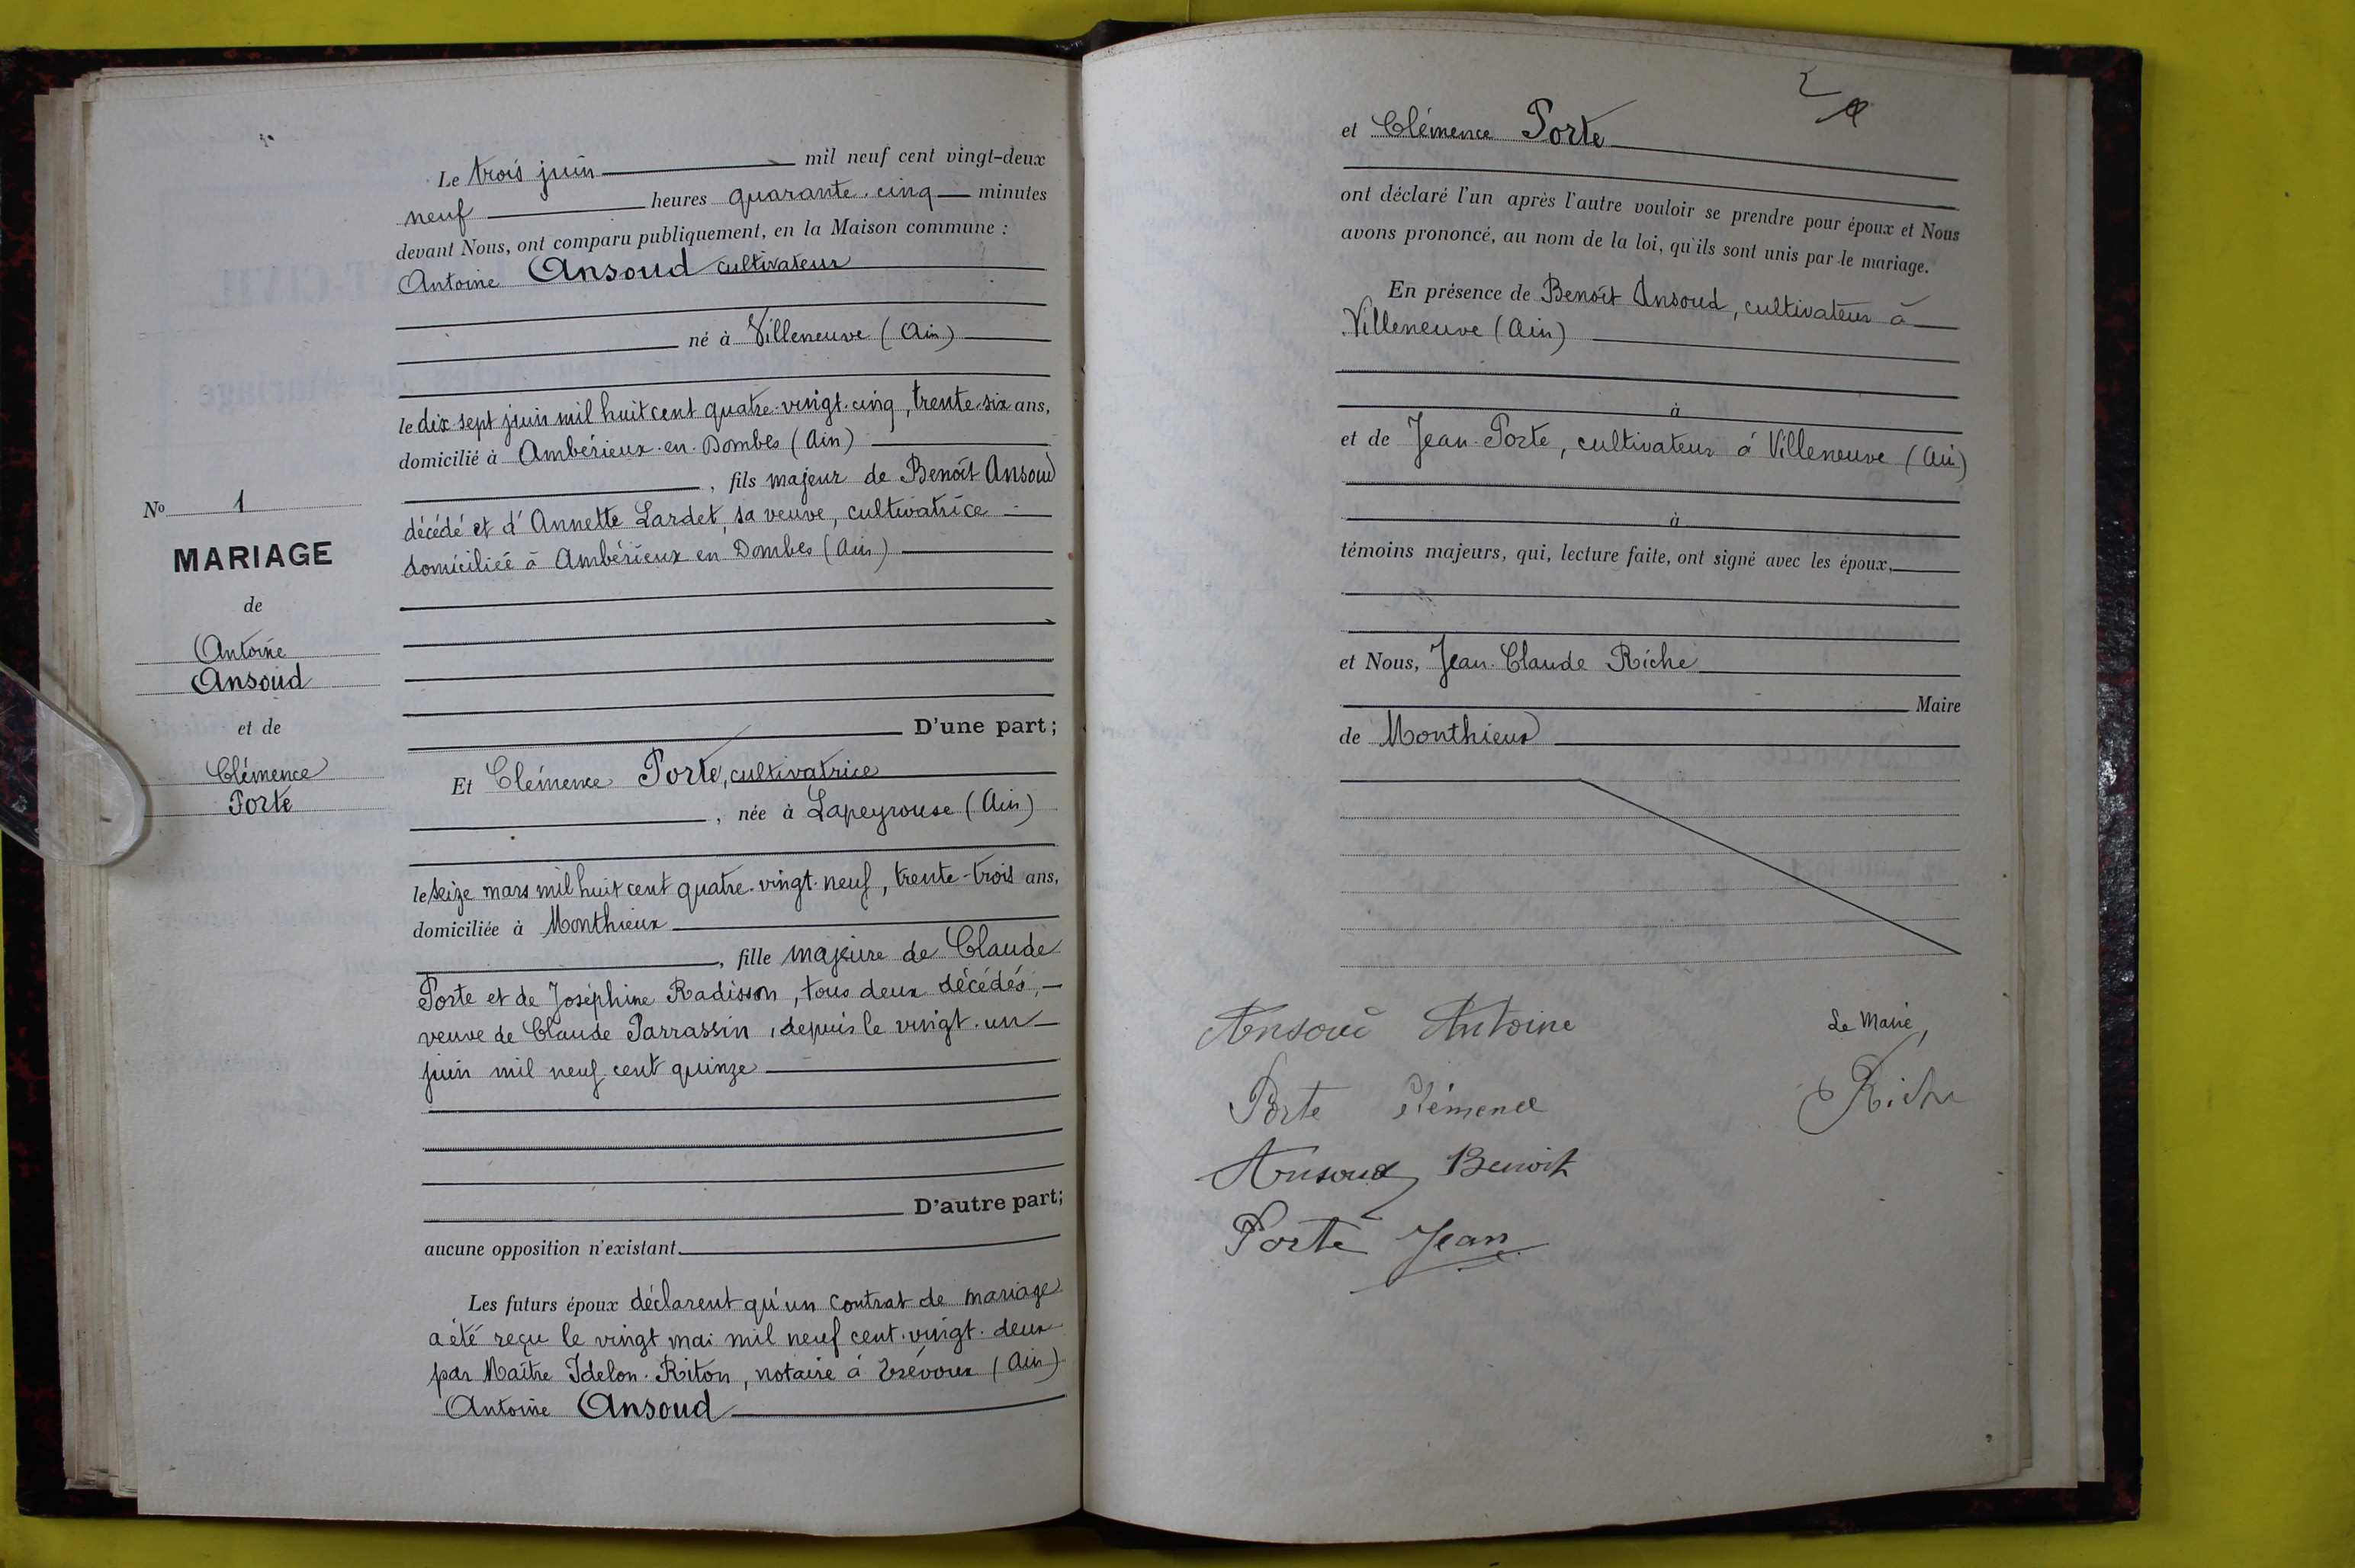 N° 1
MARIAGE
de
Antoine
Ansoud
et de
Clémence
Porte
Le trois juin mil neuf cent vingt-deux
neuf heures quarante-cinq minutes
devant Nous, ont comparu publiquement, en la Maison commune :
Antoine Ansoud cultivateur
né à Villeneuve (Ain)
le dix-sept juin mil huit cent quatre-vingt-cinq, trente-six ans,
domicilié à Ambérieux-en-Dombes (Ain)
, fils majeur de Benoît Ansoud
décédé et d'Annette Lardet, sa veuve, cultivatrice
domiciliée à Ambérieux en Dombes (Ain)
D'une part;
Et Clémence Porte, cultivatrice
, née à Lapeyrouse (Ain)
le seize mars mil huit cent quatre-vingt-neuf, trente-trois ans,
domiciliée à Monthieux
, fille majeure de Claude
Porte et de Joséphine Radisson, tous deux décédés,
veuve de Claude Parrassin, depuis le vingt-un
juin mil neuf cent quinze
D'autre part;
aucune opposition n'existant
Les futurs époux déclarent qu'un contrat de mariage
a été reçu le vingt mai mil neuf cent vingt-deux
par Maître Idelon-Riton, notaire à Trévoux (Ain)
Antoine Ansoud
2
et Clémence Porte
ont déclaré l'un après l'autre vouloir se prendre pour époux et Nous
avons prononcé, au nom de la loi, qu'ils sont unis par le mariage.
En présence de Benoît Ansoud, cultivateur à
Villeneuve (Ain)
à
et de Jean Porte, cultivateur à Villeneuve (Ain)
à
témoins majeurs, qui, lecture faite, ont signé avec les époux,
et Nous, Jean-Claude Riche
Maire
de Monthieux
Ansoud Antoine
Le Maire,
Porte Clémence
Riche
Ansoud Benoit
Porte Jean